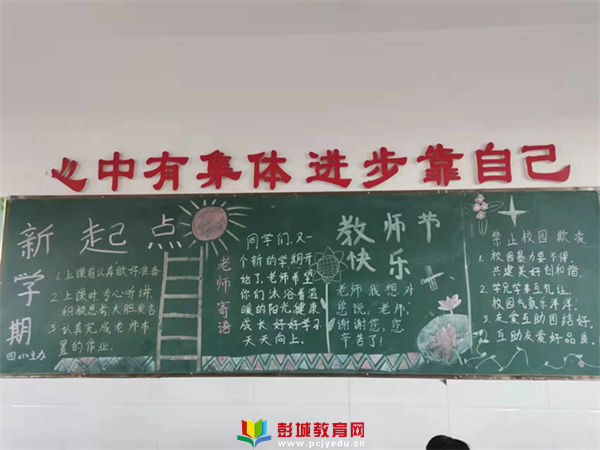 心中有集体 进步靠自己
新起点
新学期
1、上课前认真做好准备
2、上课时,专心听讲,
积极思考,大胆发言
3、认真完成老师布
置的作业。
老师寄语
同学们,又一
个新的学期开
始了,老师希望
你们沐浴着温
暖的阳光,健康
成长 好好学习
天天向上。
教师节
快乐
老师 我想对
您说,老师,
谢谢您,您
辛苦了!
禁止校园欺凌
1、校园暴力要不得,
共建美好创和谐。
2、学兄学弟互礼让,
校园气氛乐洋洋;
3、友爱互助团结好,
互助友爱好品质
彭城教育网
www.pcjyedu.cn